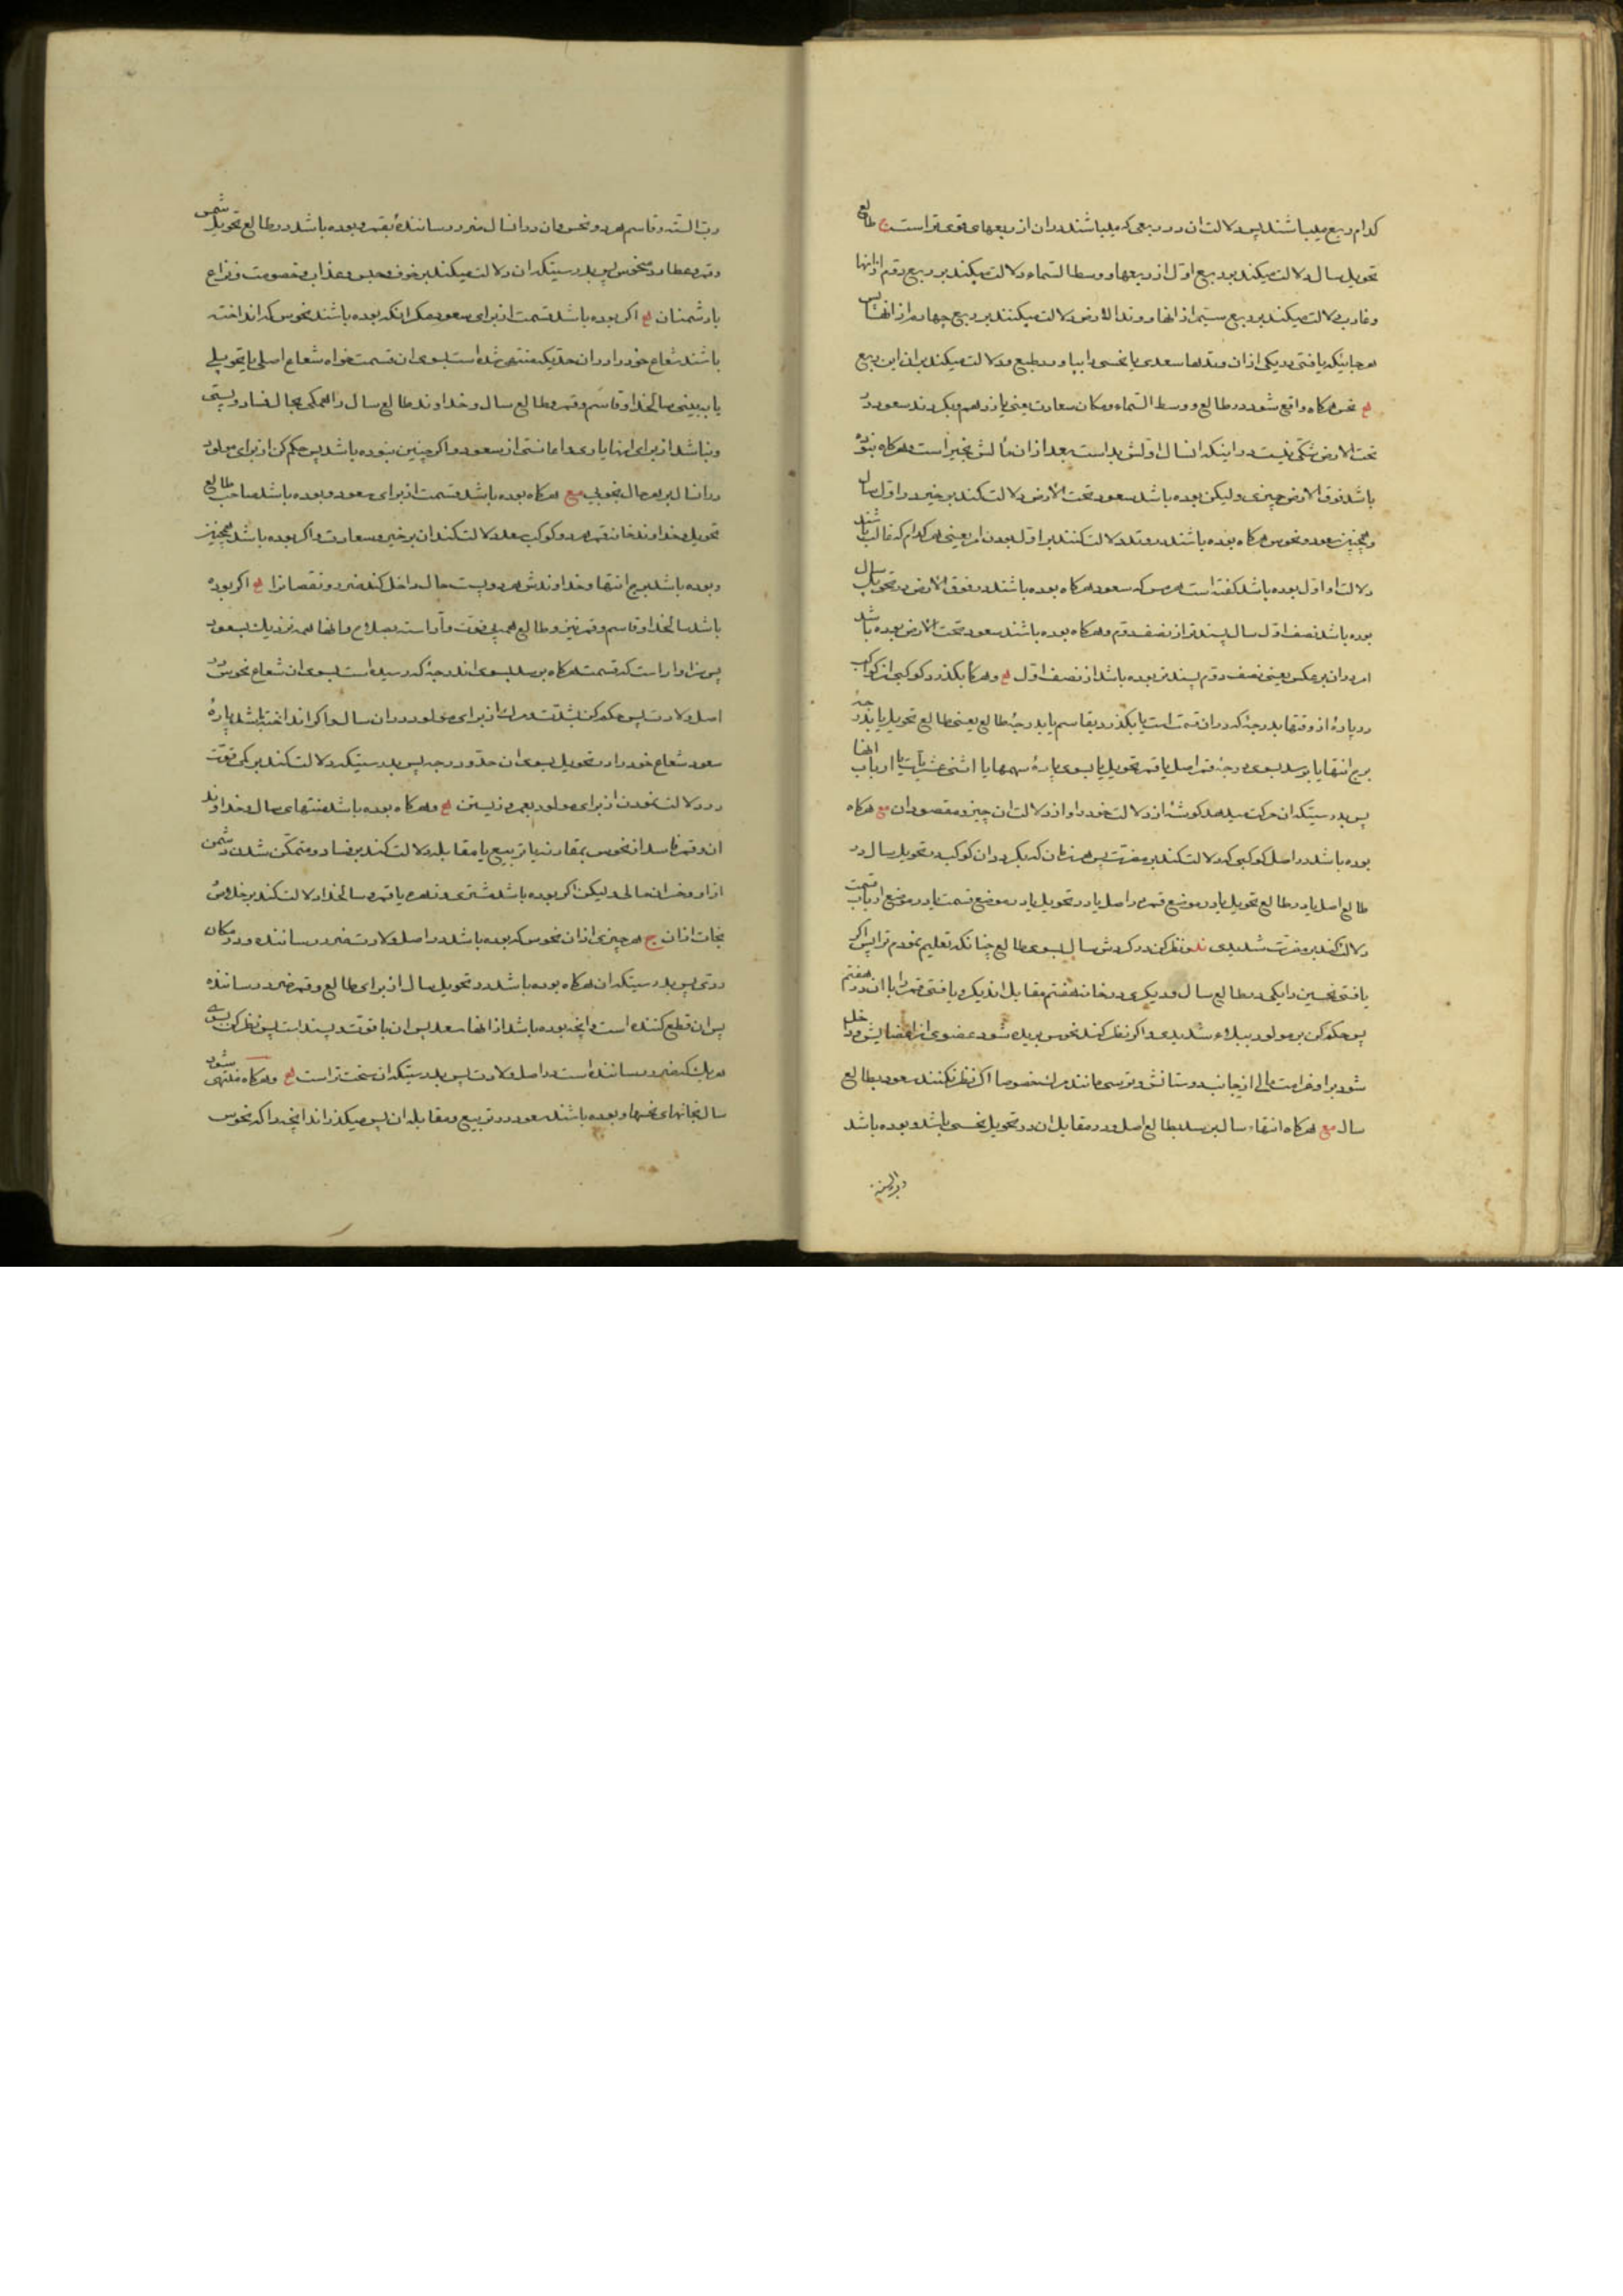 کدام ربع میباشند پس دلالت ان در ربعی که میباشند در ان از ربعهای قوی تر است ج طالع
تحویل سال دلالت میکند بر ربع اول از ربعها و وسط السماء دلالت میکند بر ربع دوم ازانها
و غارب دلالت میکند بر ربع سیم از انها و وتد الارض دلالت میکند بر ربع چهارم از انها پس
هر جاییکه یافتی در یکی از ان وتدها سعدی یا نحسی را بیاورد طبع خود دلالت میکند بر ان این ربع
نحس هرکاه واقع شود در طالع و وسط السماء و مکان سعادت یعنی یازدهم و بکردند سعود در
تحت الارض شکی نیست در اینکه انسال اولش بد است بعد از ان مآلش بخیر است و هرکاه نبوده
باشد فوق الارض چیزی ولیکن بوده باشد سعود تحت الارض دلالت کند بر خیر در اول سال
و همچنین سعود و نحوس هرکاه بوده باشند در وتد دلالت کنند بر اول بودن امر یعنی هر کدام که غالب باشند
دلالت او اول بوده باشد کفته است هرمس که سعود هرکاه بوده باشند در فوق الارض در تحویل سال
بوده باشد نصف اول سال پسندتر از نصف دوم و هرکاه بوده باشند سعود تحت الارض بوده باشد
امر در ان بر عکس یعنی نصف دوم پسندتر بوده باشد از نصف اول و هرکاه بکذرد کوکبی از کواکب
در پارهٔ از وقتها بدرجهٔ که در ان قسمت است یا بکذرد بقاسم یا بدرجهٔ طالع یعنی طالع تحویل یا بدرجه
برج انتها یا برسد بسوی درجهٔ قمر اصل یا قمر تحویل یا بسوی پارهٔ سهمها یا اثنی عشریات یا ارباب انها
پس بدرستیکه ان حرکت میدهد کوشهٔ از دلالت خود را و از دلالت ان چیز و مقصود ان هرکاه
بوده باشد در اصل کوکبی که دلالت کند بر مضرت پس هر زمان که بکردد ان کوکب در تحویل سال در
طالع اصل یا در طالع تحویل یا در موضع قمر در اصل یا در تحویل یا در موضع قسمت یا در موضع ارباب قسمت
دلالت کند بر مضرت شدیدی نظر کن در کردش سال بسوی طالع چنانکه تعلیم نمودم ترا پس اکر
یافتی نحسین را یکی در طالع سال و دیکری در خانه هفتم مقابل ان دیکر و یافتی قمر را با ان در هفتم
پس حکم کن بر مولود ببلاء شدیدی و اکر نظر کند نحوس بریده شود عضوی از اعضایش و داخل
شود بر او غرامت مالی از جانب دوستانش و ترسی مانند مرک خصوصا اکر نظر نکنند سعود بطالع
سال هرکاه انتهاء سال برسد بطالع اصل و در مقابل ان در تحویل نحسی باشد و بوده باشد
رب السنه
رب السنه و قاسم هر دو نحس و ان در انسال ضرر رسانندهٔ بقمر و بوده باشد در طالع تحویل شمس
و قمر و عطارد منحوس پس بدرستیکه ان دلالت میکند بر خوف و حبس و عذاب و خصومت و نزاع
با دشمنان اکر بوده باشد قسمت از برای سعود مکر انکه بوده باشند نحوس که انداخته
باشند شعاع خود را در ان حدیکه منتهی شده است بسوی ان قسمت خواه شعاع اصلی یا تحویلی
یا ببینی سالخدا و قاسم و قمر و طالع سال و خداوند طالع سال را همکی بحال فساد و پستی
و نباشد از برای اینها یاری و اعانتی از سعود و اکر چنین نبوده باشد پس حکم کن از برای مولود
در انسال بر حال بخوبی هرکاه بوده باشد قسمت از برای سعود و بوده باشد صاحب طالع
تحویل و خداوند خانه قمر هر دو کوکب سعد دلالت کند ان بر خیر و سعادت و اکر بوده باشد همچنین
و بوده باشد برج انتها و خداوندش هر دو پست حال داخل کند ضرر و نقصانرا اکر بوده
باشد سالخدا و قاسم و قمر نیز و طالع همه بی قوت و آراسته بصلاح و انها همه نزدیک بسعود
پس سزاوار است که قسمت هرکاه برسد بسوی اندرجهٔ که رسیده است بسوی ان شعاع نحوس در
اصل ولادت پس حکم کن بشدت مرک از برای مولود در ان سال و اکر انداخته باشد پارهٔ
سعود شعاع خود را در تحویل بسوی ان حد و درجه پس بدرستیکه دلالت کند بر کمی قوت
درد دلالت نمودن از برای مولود بعمر و زیستن و هرکاه بوده باشد منتهای سال و خداوند
ان و قمر فاسد از نحوس بمقارنه یا تربیع یا مقابله دلالت کند بر فساد و متمکن شدن دشمن
از او و خسران مالی ولیکن اکر بوده باشد مشتری و زهره یا قمر و سالخدا دلالت کند بر خلاص و
نجات از ان ج هر چیزی از ان نحوس که بوده باشد در اصل ولادت ضرر رساننده و در مکان
ردی پس بدرستیکه ان هرکاه بوده باشد در تحویل سال از برای طالع و قمر ضرر رساننده
پس ان قطع کننده است و انچه بوده باشد از انها سعد پس ان با قوت و پسند است پس نظر کن بسوی
هر یک که ضرر رساننده است در اصل ولادت پس بدرستیکه ان سخت تر است و هرکاه منتهی شود
سال بخانهای نحسها و بوده باشند سعود در تربیع و مقابله ان پس میکذراند انچه را که نحوس